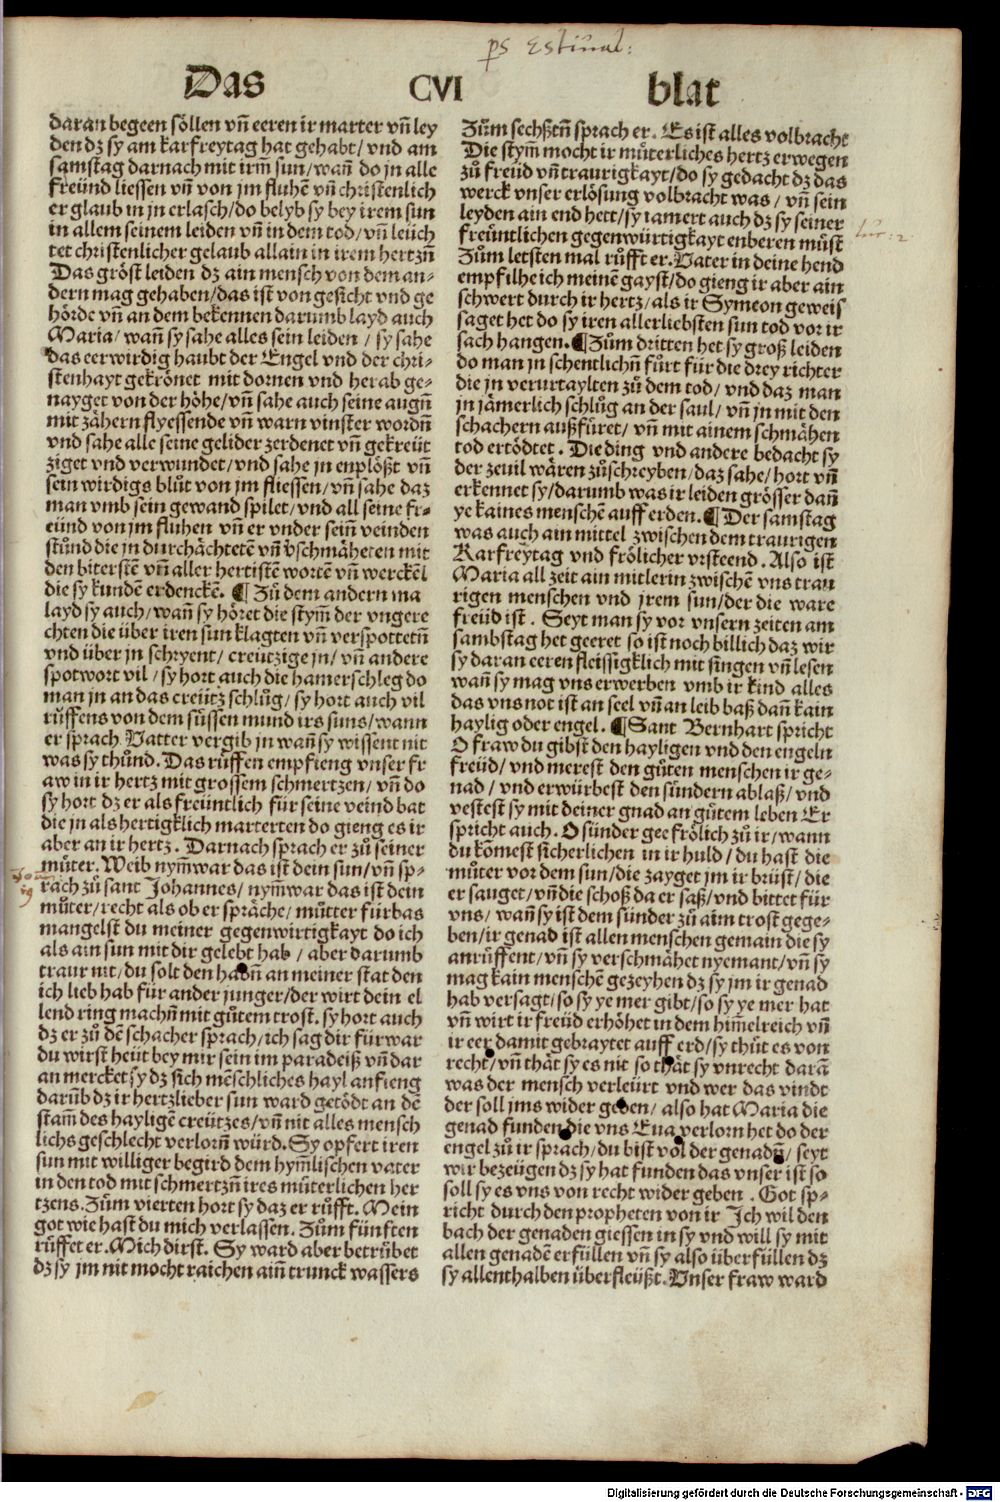 ps Estiual:
Das CVI blat
daran begeen söllen vñ eeren ir marter vñ ley
den dz sy am karfreytag hat gehabt/ vnd am
samstag darnach mit irm̃ sun/ wañ do jn alle
freünd liessen vñ von jm fluhẽ vñ christenlich
er glaub in jn erlasch/ do belyb sy bey irem sun
in allem seinem leiden vñ in dem tod/ vñ leüch
tet christenlicher gelaub allain in irem hertzñ
Das gröst leiden dz ain mensch von dem an-
dern mag gehaben/ das ist von gesicht vnd ge
hörde vñ an dem bekennen darumb layd auch
Maria/ wañ sy sahe alles sein leiden / sy sahe
das eerwirdig haubt der Engel vnd der chri-
stenhayt gekrönet mit dornen vnd herab ge-
nayget von der höhe/ vñ sahe auch seine augñ
mit zähern flyessende vñ warn vinster wordñ
vnd sahe alle seine gelider zerdenet vñ gekreüt
ziget vnd verwundet/ vnd sahe jn enplößt vñ
sein wirdigs blůt von jm fliessen/ vñ sahe daz
man vmb sein gewand spilet/ vnd all seine fr-
eünd von jm fluhen vñ er vnder seiñ veinden
stůnd die jn durchächtetẽ vñ v̾schmäheten mit
den biterstẽ vñ aller hertistẽ wortẽ vñ werckẽ
die sy kundẽ erdenckẽ. ¶ Zů dem andern ma
layd sy auch/ wañ sy höret die stym̃ der vngere
chten die über iren sun klagten vñ verspottetñ
vnd über jn schryent/ creützige jn/ vñ andere
spotwort vil / sy hort auch die hamerschleg do
man jn an das creütz schlůg/ sy hort auch vil
růffens von dem süssen mund irs suns/ wann
er sprach Vatter vergib jn wañ sy wissent nit
was sy thůnd. Das růffen empfieng vnser fr
aw in ir hertz mit grossem schmertzen/ vñ do
sy hort dz er als freüntlich für seine veind bat
die jn als hertigklich marterten do gieng es ir
aber an ir hertz . Darnach sprach er zů seiner
můter. Weib nym̃war das ist dein sun/ vñ sp-
rach zů sant Johannes/ nym̃war das ist dein
můter/ recht als ob er spräche/ můtter fürbas
mangelst du meiner gegenwirtigkayt do ich
als ain sun mit dir gelebt hab / aber darumb
traur nit/ du solt den habñ an meiner stat den
ich lieb hab für ander junger/ der wirt dein el
lend ring machñ mit gůtem trost. sy hort auch
dz er zů dẽ schacher sprach/ ich sag dir fürwar
du wirst heüt bey mir sein im paradeiß vñ dar
an mercket sy dz sich mẽschliches hayl anfieng
darũb dz ir hertzlieber sun ward getödt an dẽ
stam̃ des hayligẽ creützes/ vñ nit alles mensch
lichs geschlecht verlorñ würd. Sy opfert iren
sun mit williger begird dem hym̃lischen vater
in den tod mit schmertzñ ires můterlichen her
tzens. Zům vierten hort sy daz er růfft. Mein
got wie hast du mich verlassen. Zům fünften
růffet er. Mich dirst. Sy ward aber betrübet
dz sy jm nit mocht raichen aiñ trunck wassers
Zům sechßtñ sprach er. Es ist alles volbracht
Die stym̃ mocht ir můterliches hertz erwegen
zů freüd vñ traurigkayt/ do sy gedacht dz das
werck vnser erlösung volbracht was / vñ sein
leyden ain end hett/ sy iamert auch dz sy seiner
freüntlichen gegenwürtigkayt enberen můst
Zům letsten mal růfft er. Vater in deine hend
empfilhe ich meinẽ gayst/ do gieng ir aber ain
schwert durch ir hertz/ als ir Symeon geweis
saget het do sy iren allerliebsten sun tod vor ir
sach hangen. ¶ Zům dritten het sy groß leiden
do man jn schentlichñ fürt für die drey richter
die jn verurtaylten zů dem tod/ vnd daz man
jn jämerlich schlůg an der saul/ vñ jn mit den
schachern außfüret/ vñ mit ainem schmähen
tod ertödtet . Die ding vnd andere bedacht sy
der zeuil wären zůschreyben/ daz sahe/ hort vñ
erkennet sy/ darumb was ir leiden grösser dañ
ye kaines menschẽ auff erden. ¶ Der samstag
was auch ain mittel zwischen dem traurigen
Karfreytag vnd frölicher vrsteend. Also ist
Maria all zeit ain mitlerin zwischẽ vns trau
rigen menschen vnd jrem sun/ der die ware
freüd ist . Seyt man sy vor vnsern zeiten am
sambstag het geeret so ist noch billich daz wir
sy daran eeren fleissigklich mit singen vñ lesen
wañ sy mag vns erwerben vmb ir kind alles
das vns not ist an seel vñ an leib baß dañ kain
haylig oder engel. ¶ Sant Bernhart spricht
O fraw du gibst den hayligen vnd den engeln
freüd/ vnd merest den gůten menschen ir ge-
nad / vnd erwürbest den sündern ablaß/ vnd
vestest sy mit deiner gnad an gůtem leben Er
spricht auch. O sünder gee frölich zů ir/ wann
du kõmest sicherlichen in ir huld / du hast die
můter vor dem sun/ die zayget jm ir brüst/ die
er sauget/ vñ die schoß da er saß/ vnd bittet für
vns/ wañ sy ist dem sünder zů aim trost gege-
ben/ ir genad ist allen menschen gemain die sy
anrůffent/ vñ sy verschmähet nyemant/ vñ sy
mag kain menschẽ gezeyhen dz sy jm ir genad
hab versagt/ so sy ye mer gibt/ so sy ye mer hat
vñ wirt ir freüd erhöhet in dem him̃elreich vñ
ir eer damit gebraytet auff erd/ sy thůt es von
recht/ vñ thät sy es nit so thät sy vnrecht darã
was der mensch verleürt vnd wer das vindt
der soll jms wider geben/ also hat Maria die
genad funden die vns Eua verlorn het do der
engel zů ir sprach/ du bist vol der genadñ/ seyt
wir bezeügen dz sy hat funden das vnser ist so
soll sy es vns von recht wider geben . Got sp-
richt durch den propheten von ir Jch wil den
bach der genaden giessen in sy vnd will sy mit
allen genadẽ erfüllen vñ sy also überfüllen dz
sy allenthalben überfleüßt. Vnser fraw ward
luc: 2.
Joan
19
Digitalisierung gefördert durch die Deutsche Forschungsgemeinschaft - DFG